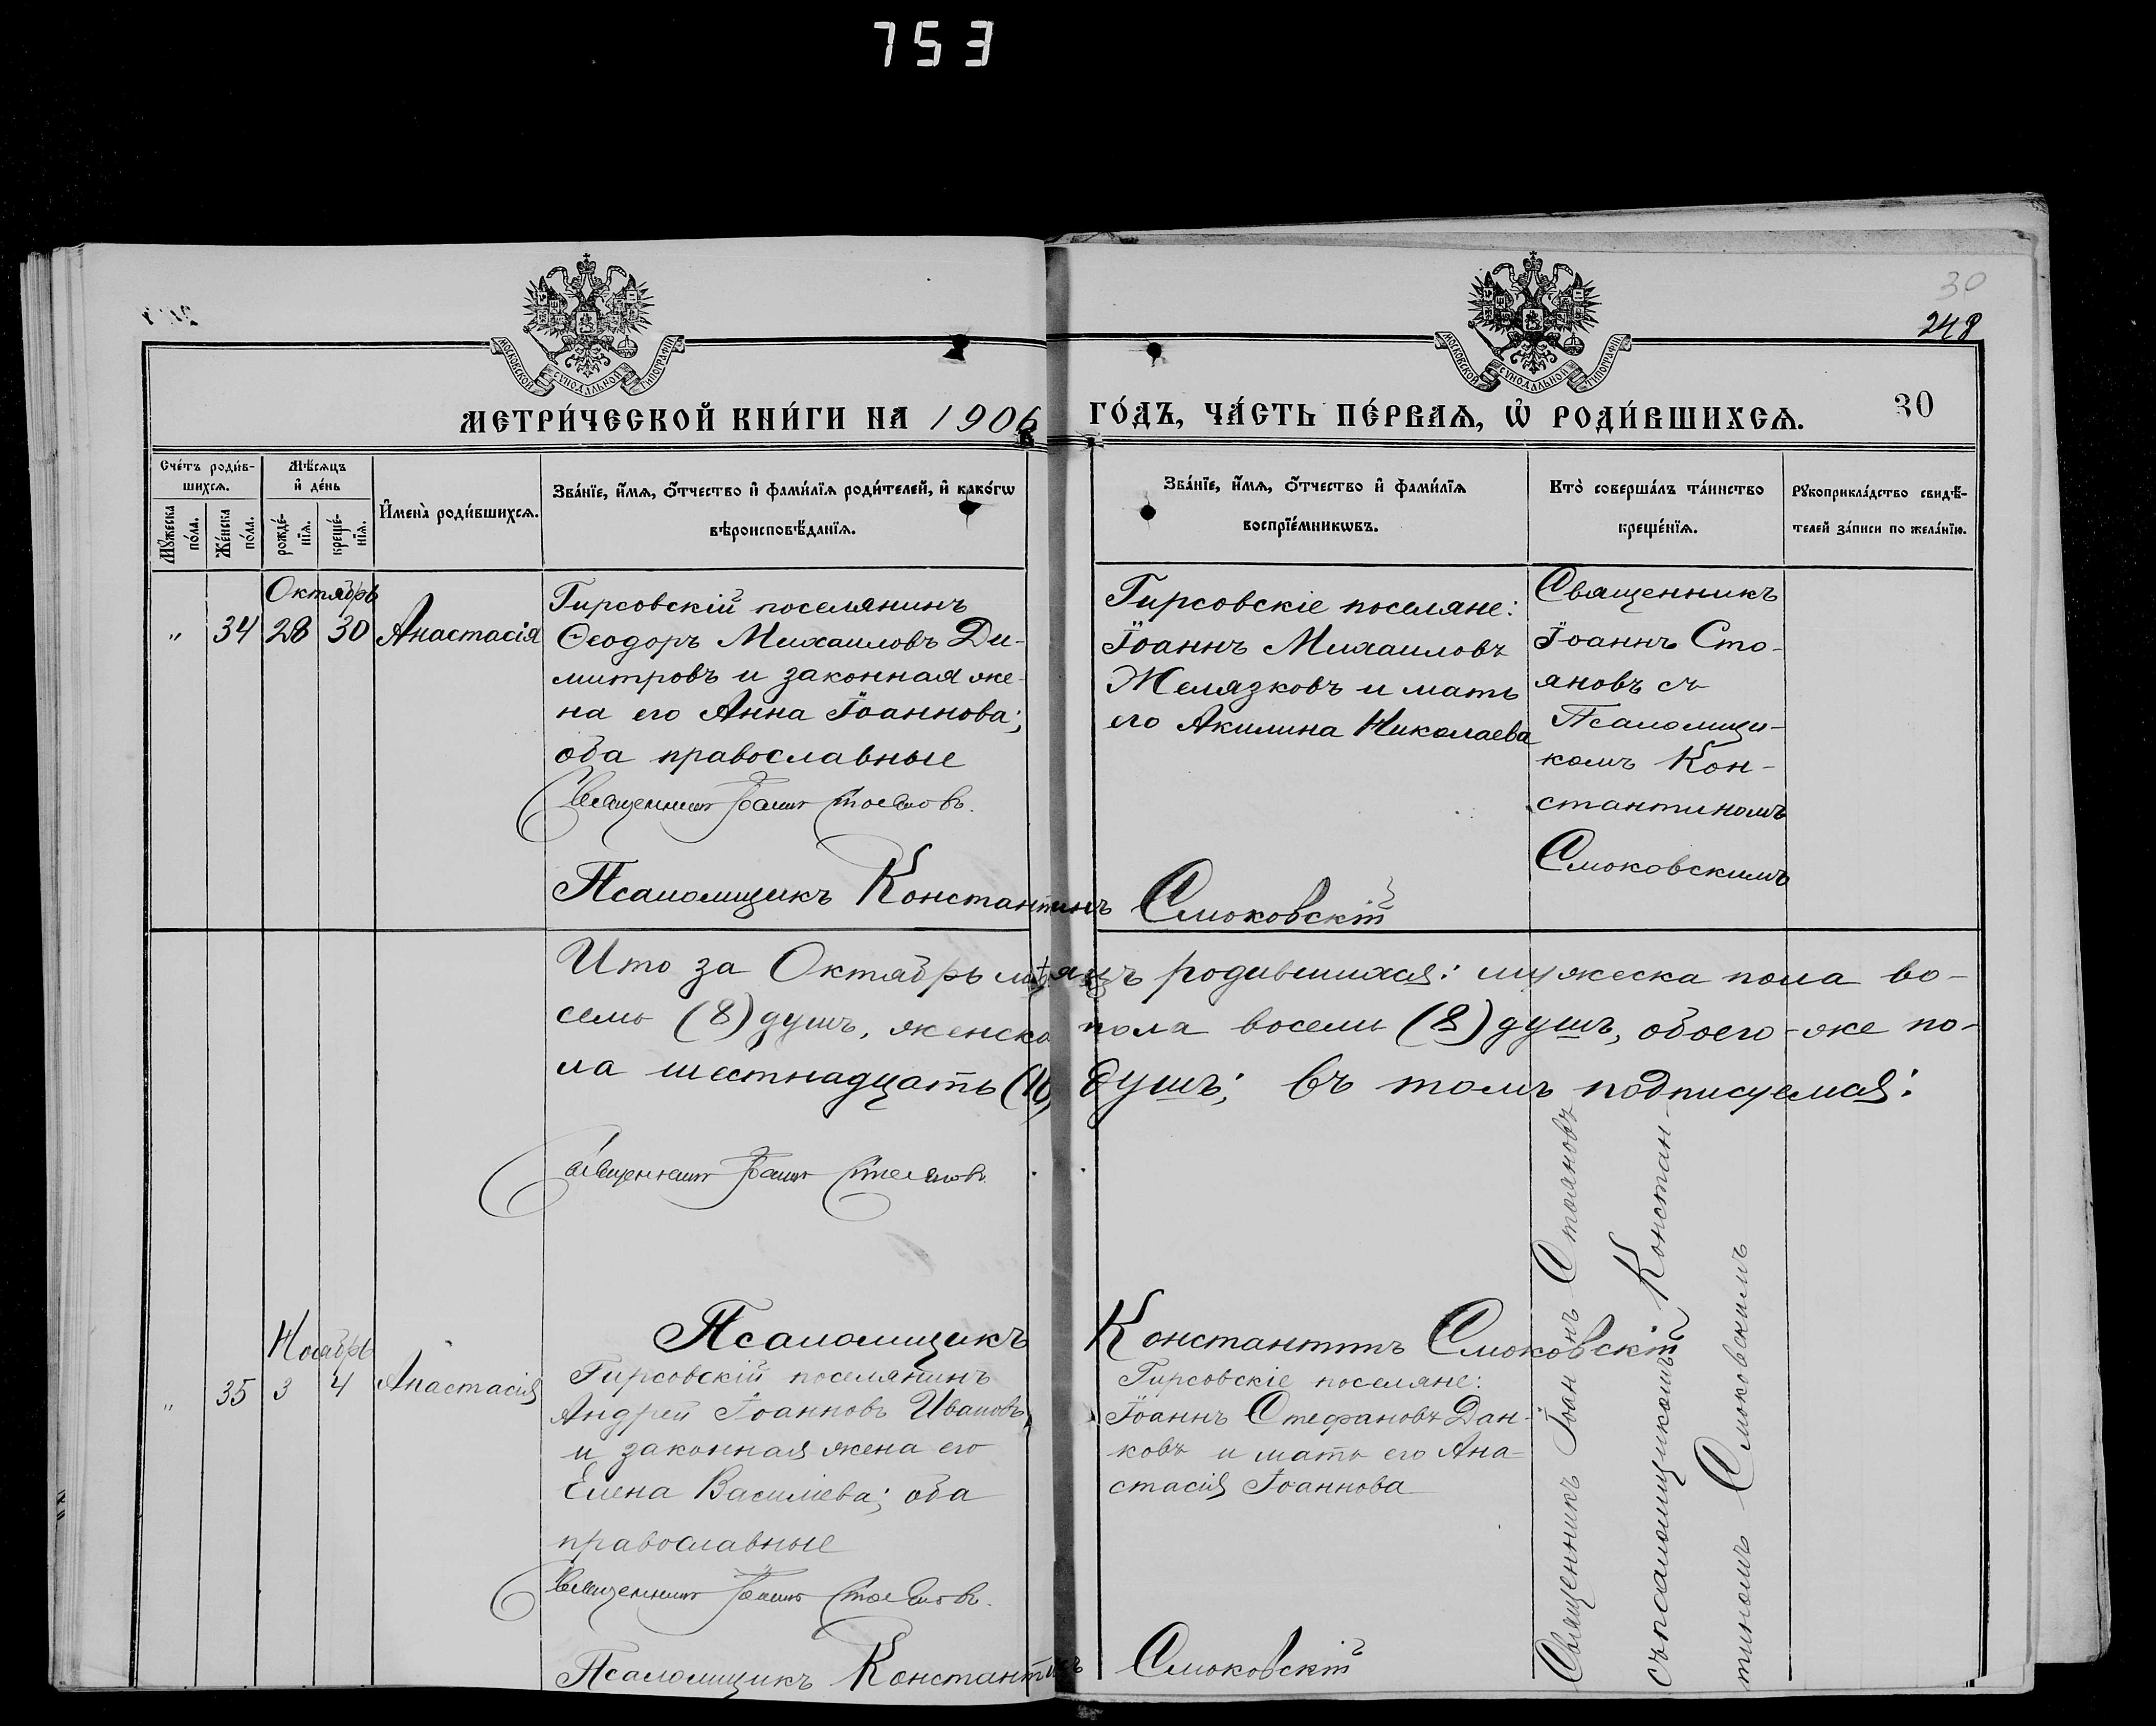 753
30
248
МОСКОВСКОЙ СѴНОДАЛЬНОЙ ТИПОГРАФІИ
МОСКОВСКОЙ СѴНОДАЛЬНОЙ ТИПОГРАФІИ
МЕТРИ́ЧЕСКОЙ КНИ́ГИ НА 1906 ГО́ДЪ, ЧА́СТЬ ПЕ́РВАѦ, Ѡ҆ РОДИ́ВШИХСѦ.
30
Сче́тъ роди́в-
шихсѧ.
Мꙋ́жеска
по́ла.
Же́нска
по́ла.
Мѣ́сѧцъ
и҆ де́нь
рожде́-
нїѧ.
креще́-
нїѧ.
И҆мена̀ роди́вшихсѧ.
Зва́нїе, и҆́мѧ, ѻ҆́тчество и҆ фами́лїѧ роди́телей, и҆ како́гѡ
вѣроисповѣ́данїѧ.
Зва́нїе, и҆́мѧ, ѻ҆́тчество и҆ фами́лїѧ
воспрїе́мникѡвъ.
Кто̀ соверша́лъ та́инство
креще́нїѧ.
Рꙋкоприкла́дство свидѣ́-
телей за́писи по жела́нїю.
Октябрь
" 34 28 30 Анастасія
Гирсовскій поселянинъ
Ѳеодоръ Михаиловъ Ди-
митровъ и законная же-
на его Анна Іоаннова;
оба православные
Священникъ Іоаннъ Стояновъ.
Псаломщикъ Константинъ Смоковскій
Гирсовскіе поселяне:
Іоаннъ Михаиловъ
Желязковъ и мать
его Акилина Николаева
Священникъ
Іоаннъ Сто-
яновъ съ
Псаломщи-
комъ Кон-
стантиномъ
Смоковскимъ
Итого за Октябрь мѣсяцъ родившихся: мужеска пола во-
семь (8) душъ, женска пола восемь (8) душъ, обоего-же по-
ла шестнадцать (16) душъ; въ томъ подписуемся:
Священникъ Іоаннъ Стояновъ.
Псаломщикъ Константинъ Смоковскій
Ноябрь
" 35 3 4 Анастасія
Гирсовскій поселянинъ
Андрей Іоанновъ Ивановъ
и законная жена его
Елена Василіева; оба
православные
Священникъ Іоаннъ Стояновъ.
Псаломщикъ Константинъ Смоковскій
Гирсовскіе поселяне:
Іоаннъ Стефановъ Дан-
ковъ и мать его Ана-
стасія Іоаннова
Священникъ Іоаннъ Стояновъ
съ псаломщикомъ Констан-
тиномъ Смоковскимъ